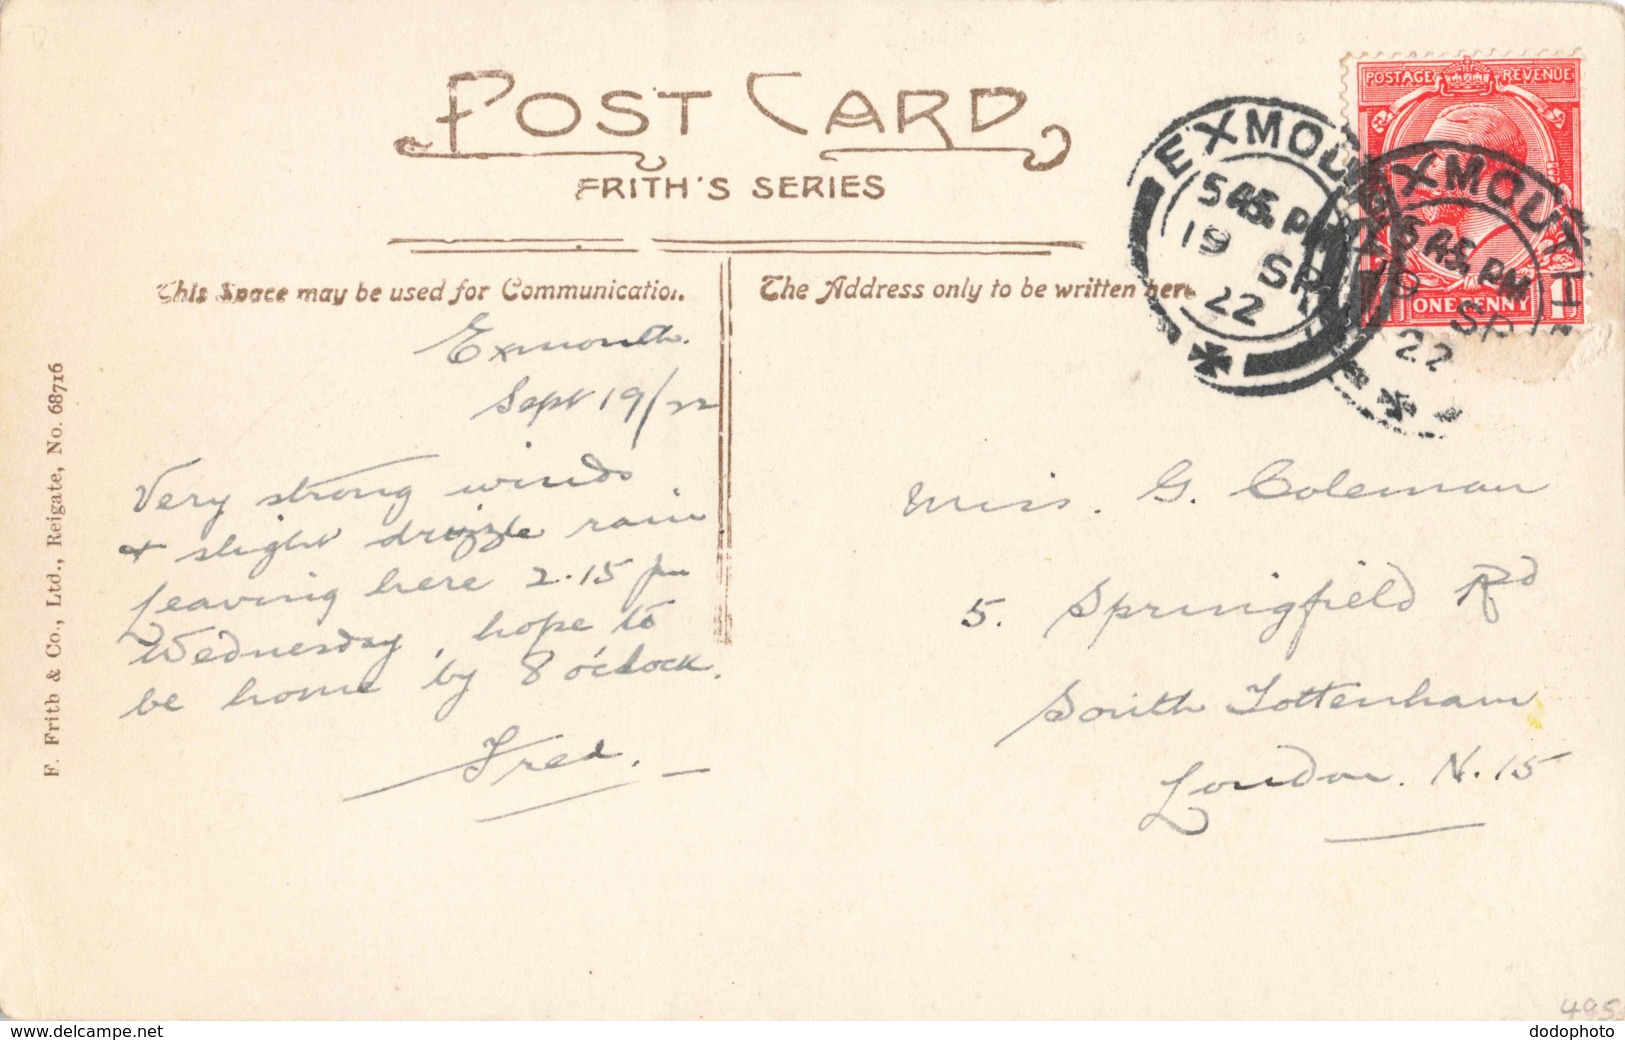 POST CARD
FRITH'S SERIES
This Space may be used for Communication.
The Address only to be written here
EXMOUTH
5 45. PM
19 SP
22
EXMOUTH
5 45. PM
19 SP
22
POSTAGE REVENUE
ONE PENNY
F. Frith & Co., Ltd., Reigate, No. 68716
Exmouth.
Sept 19/22
Very strong winds
& slight drizzle rain.
leaving here 2.15 pm
Wednesday, hope to
be home by 8 o'clock.
Fred.
Miss. G. Coleman
5. Springfield Rd
South Tottenham
London. N.15
495
delcampe.net
dodophoto